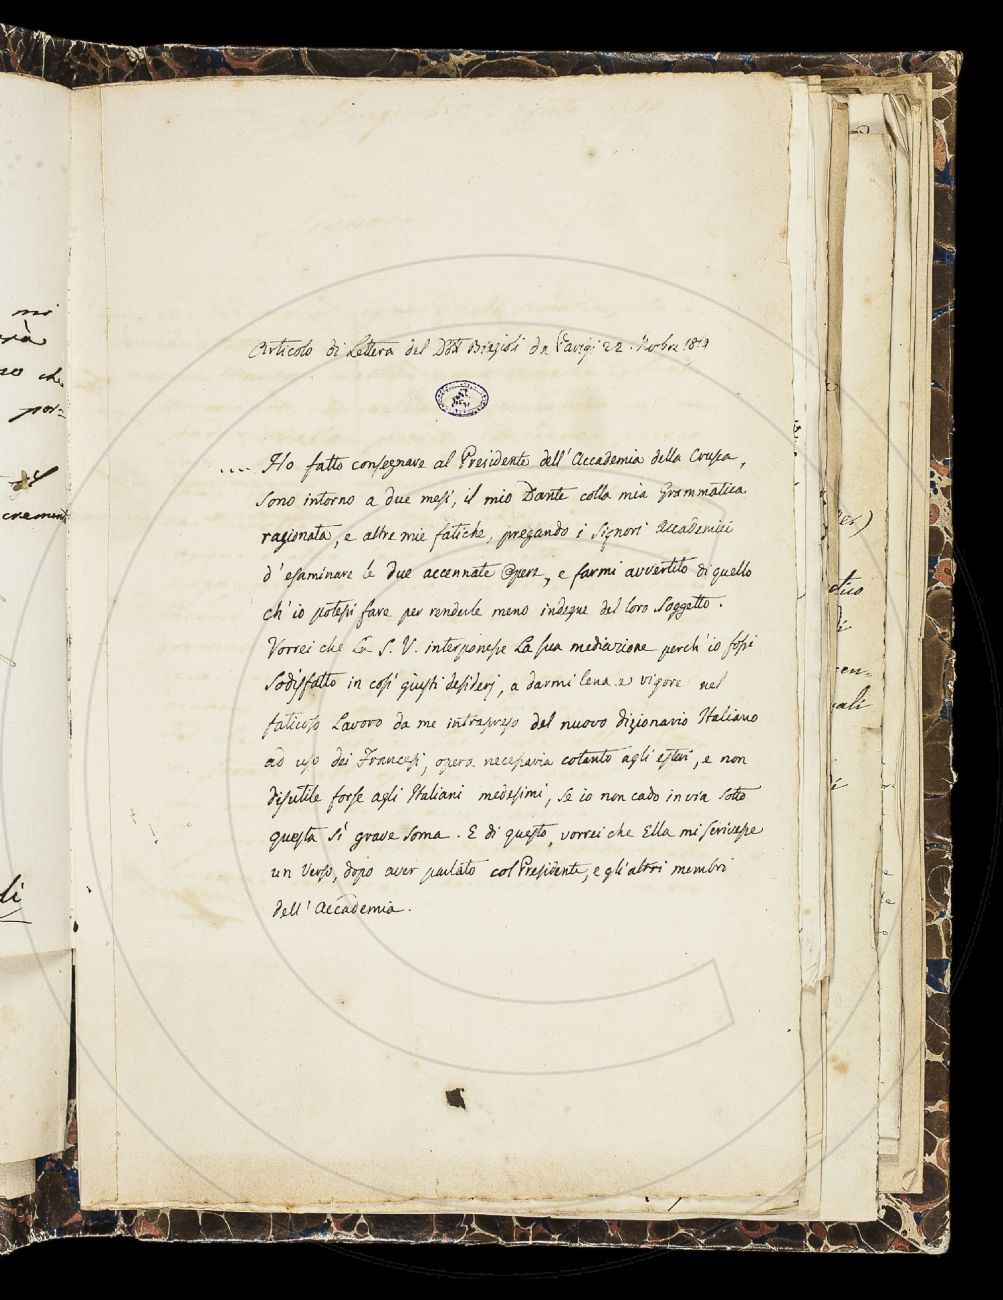 Articolo di Lettera del Dott Biagioli da Parigi 22. Novbre 1819
.... Ho fatto consegnare al Presidente dell'Accademia della Crusca,
sono intorno a due mesi, il mio Dante colla mia Grammatica
ragionata, e altre mie fatiche, pregando i Signori Accademici
d'esaminare le due accennate Opere, e farmi avvertito di quello
ch'io potessi fare per renderle meno indegne del loro Soggetto.
Vorrei che La S. V. interponesse La sua mediazione perch'io fossi
Sodisfatto in così giusti desiderj, a darmi lena e vigore nel
faticoso Lavoro da me intrapreso del nuovo dizionario Italiano
ad uso dei Francesi, opera necessaria cotanto agli esteri, e non
disutile forse agli Italiani medesimi, se io non cado in via sotto
questa sì grave soma. E di questo, vorrei che Ella mi scrivesse
un verso, dopo aver parlato col Presidente, e gli altri membri
dell'Accademia.
mi
che
por=
crement
li
ali